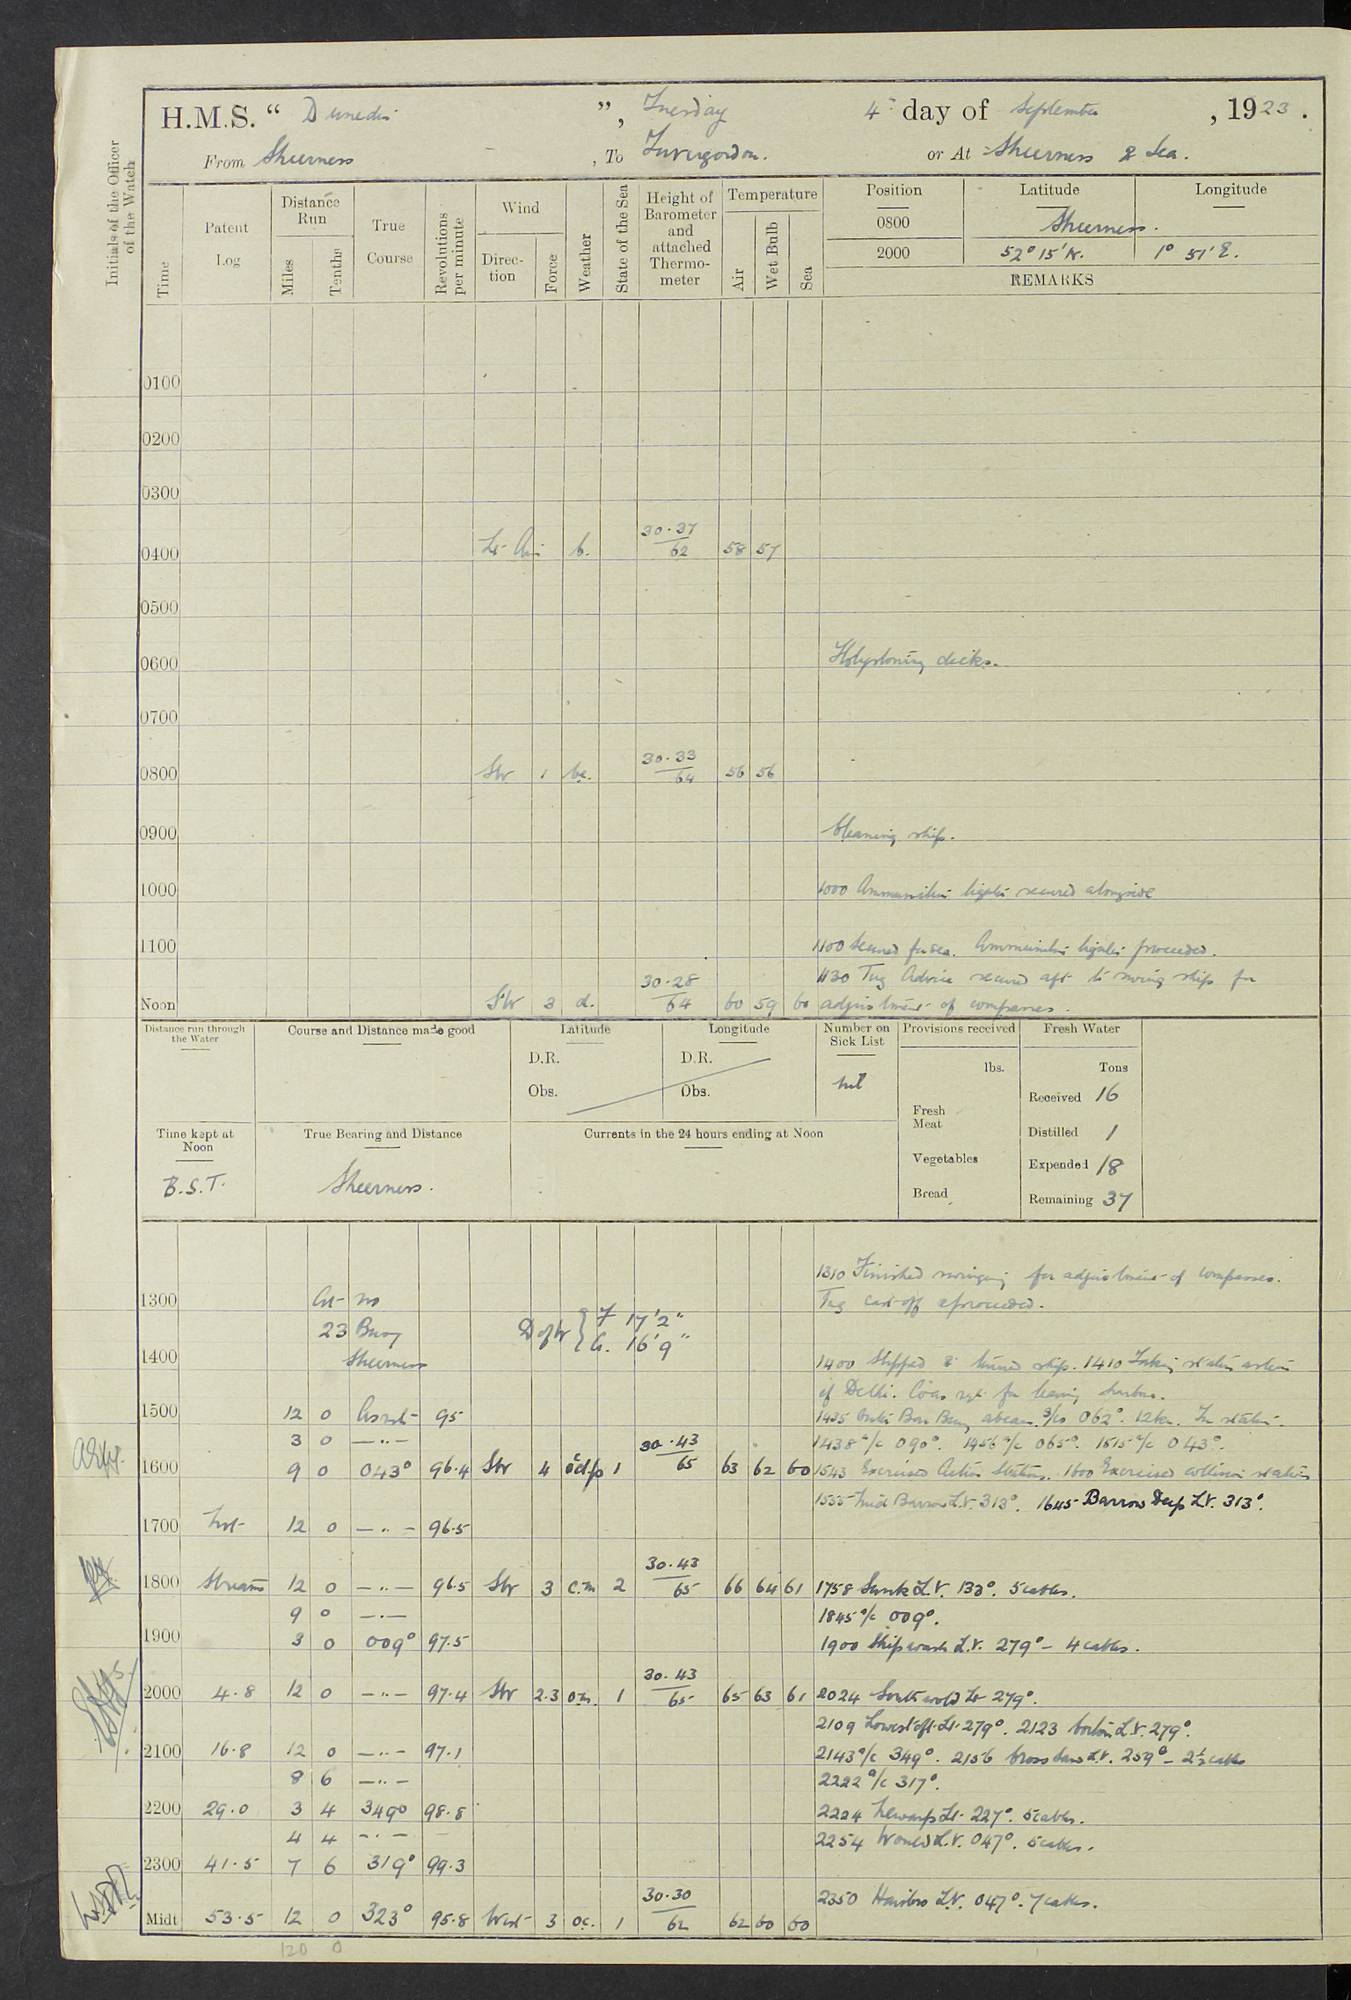 H.M.S. “ Dunedin ”, Tuesday 4th day of September, 1923.
From Sheerness, To Invergordon. or At Sheerness & Sea.
Initials of the Officer of the Watch
Time
Patent Log
Distance Run
Miles
Tenths
True Course
Revolutions per minute
Wind
Direc-tion
Force
Weather
State of the Sea
Height of Barometer and attached Thermo-meter
Temperature
Air
Wet Bulb
Sea
Position Latitude Longitude
0800 Sheerness.
2000 52° 15' N. 1° 51' E.
REMARKS
0100
0200
0300
0400 Lt Air b. 30.37 62 58 57
0500
0600 Holystoning decks.
0700
0800 SW 1 bc. 30.33 64 56 56
0900 Cleaning ship.
1000 1000 Ammunition lighter secured alongside
1100 1100 Secured for sea. Ammunition lighter proceeded.
1130 Tug Advice secured aft to swing ship for
Noon SW 3 d. 30.28 64 60 59 60 adjustment of compasses.
Distance run through the Water
Course and Distance made good
Latitude
D.R.
Obs.
Longitude
D.R.
Obs.
Number on Sick List
nil
Provisions received
lbs.
Fresh Meat
Vegetables
Bread
Fresh Water
Tons
Received 16
Distilled 1
Expended 18
Remaining 37
Time kept at Noon
B.S.T.
True Bearing and Distance
Sheerness.
Currents in the 24 hours ending at Noon
1310 Finished swinging for adjustment of compasses.
1300 At no Tug cast off & proceeded.
23 Buoy Draft { F 17' 2"
A. 16' 9"
1400 Sheerness 1400 Slipped & turned ship. 1410 Taking station astern
of Delhi. Co as req. for leaving harbour.
1500 12 0 As req 95 1435 Outer Bar Buoy abeam. a/co 062°. 12 kn. In station.
3 0 — " — 1438 a/c 090°. 1456 a/c 065°. 1515 a/c 043°.
1600 9 0 043° 96.4 SW 4 1 30.43 65 63 62 60 1543 Exercised Action Stations. 1600 Exercised collision stations
1535 Mid Barrow L.V. 313°. 1645 Barrow Deep L.V. 313°.
1700 Not 12 0 — " — 96.5
1800 Streamed 12 0 — " — 96.5 SW 3 c.m 2 30.43 65 66 64 61 1758 Sunk L.V. 133°. 5 cables.
9 0 — " — 1845 a/c 009°.
1900 3 0 009° 97.5 1900 Shipwash L.V. 279° - 4 cables.
2000 4.8 12 0 — " — 97.4 SW 2.3 o.m. 1 30.43 65 65 63 61 2024 Southwold Lt 279°.
2109 Lowestoft Lt. 279°. 2123 Corton L.V. 279°.
2100 16.8 12 0 — " — 97.1 2143 a/c 349°. 2156 Cross Sand L.V. 259° - 2½ cables
8 6 — " — 2222 a/c 317°.
2200 29.0 3 4 349° 98.8 2224 Newarp Lt. 227°. 5 cables.
4 4 — " — 2254 Would L.V. 047°. 5 cables.
2300 41.5 7 6 319° 99.3
Midt 53.5 12 0 323° 95.8 West 3 oc. 1 30.30 62 62 60 60 2350 Haisbro L.V. 047°. 7 cables.
120 0